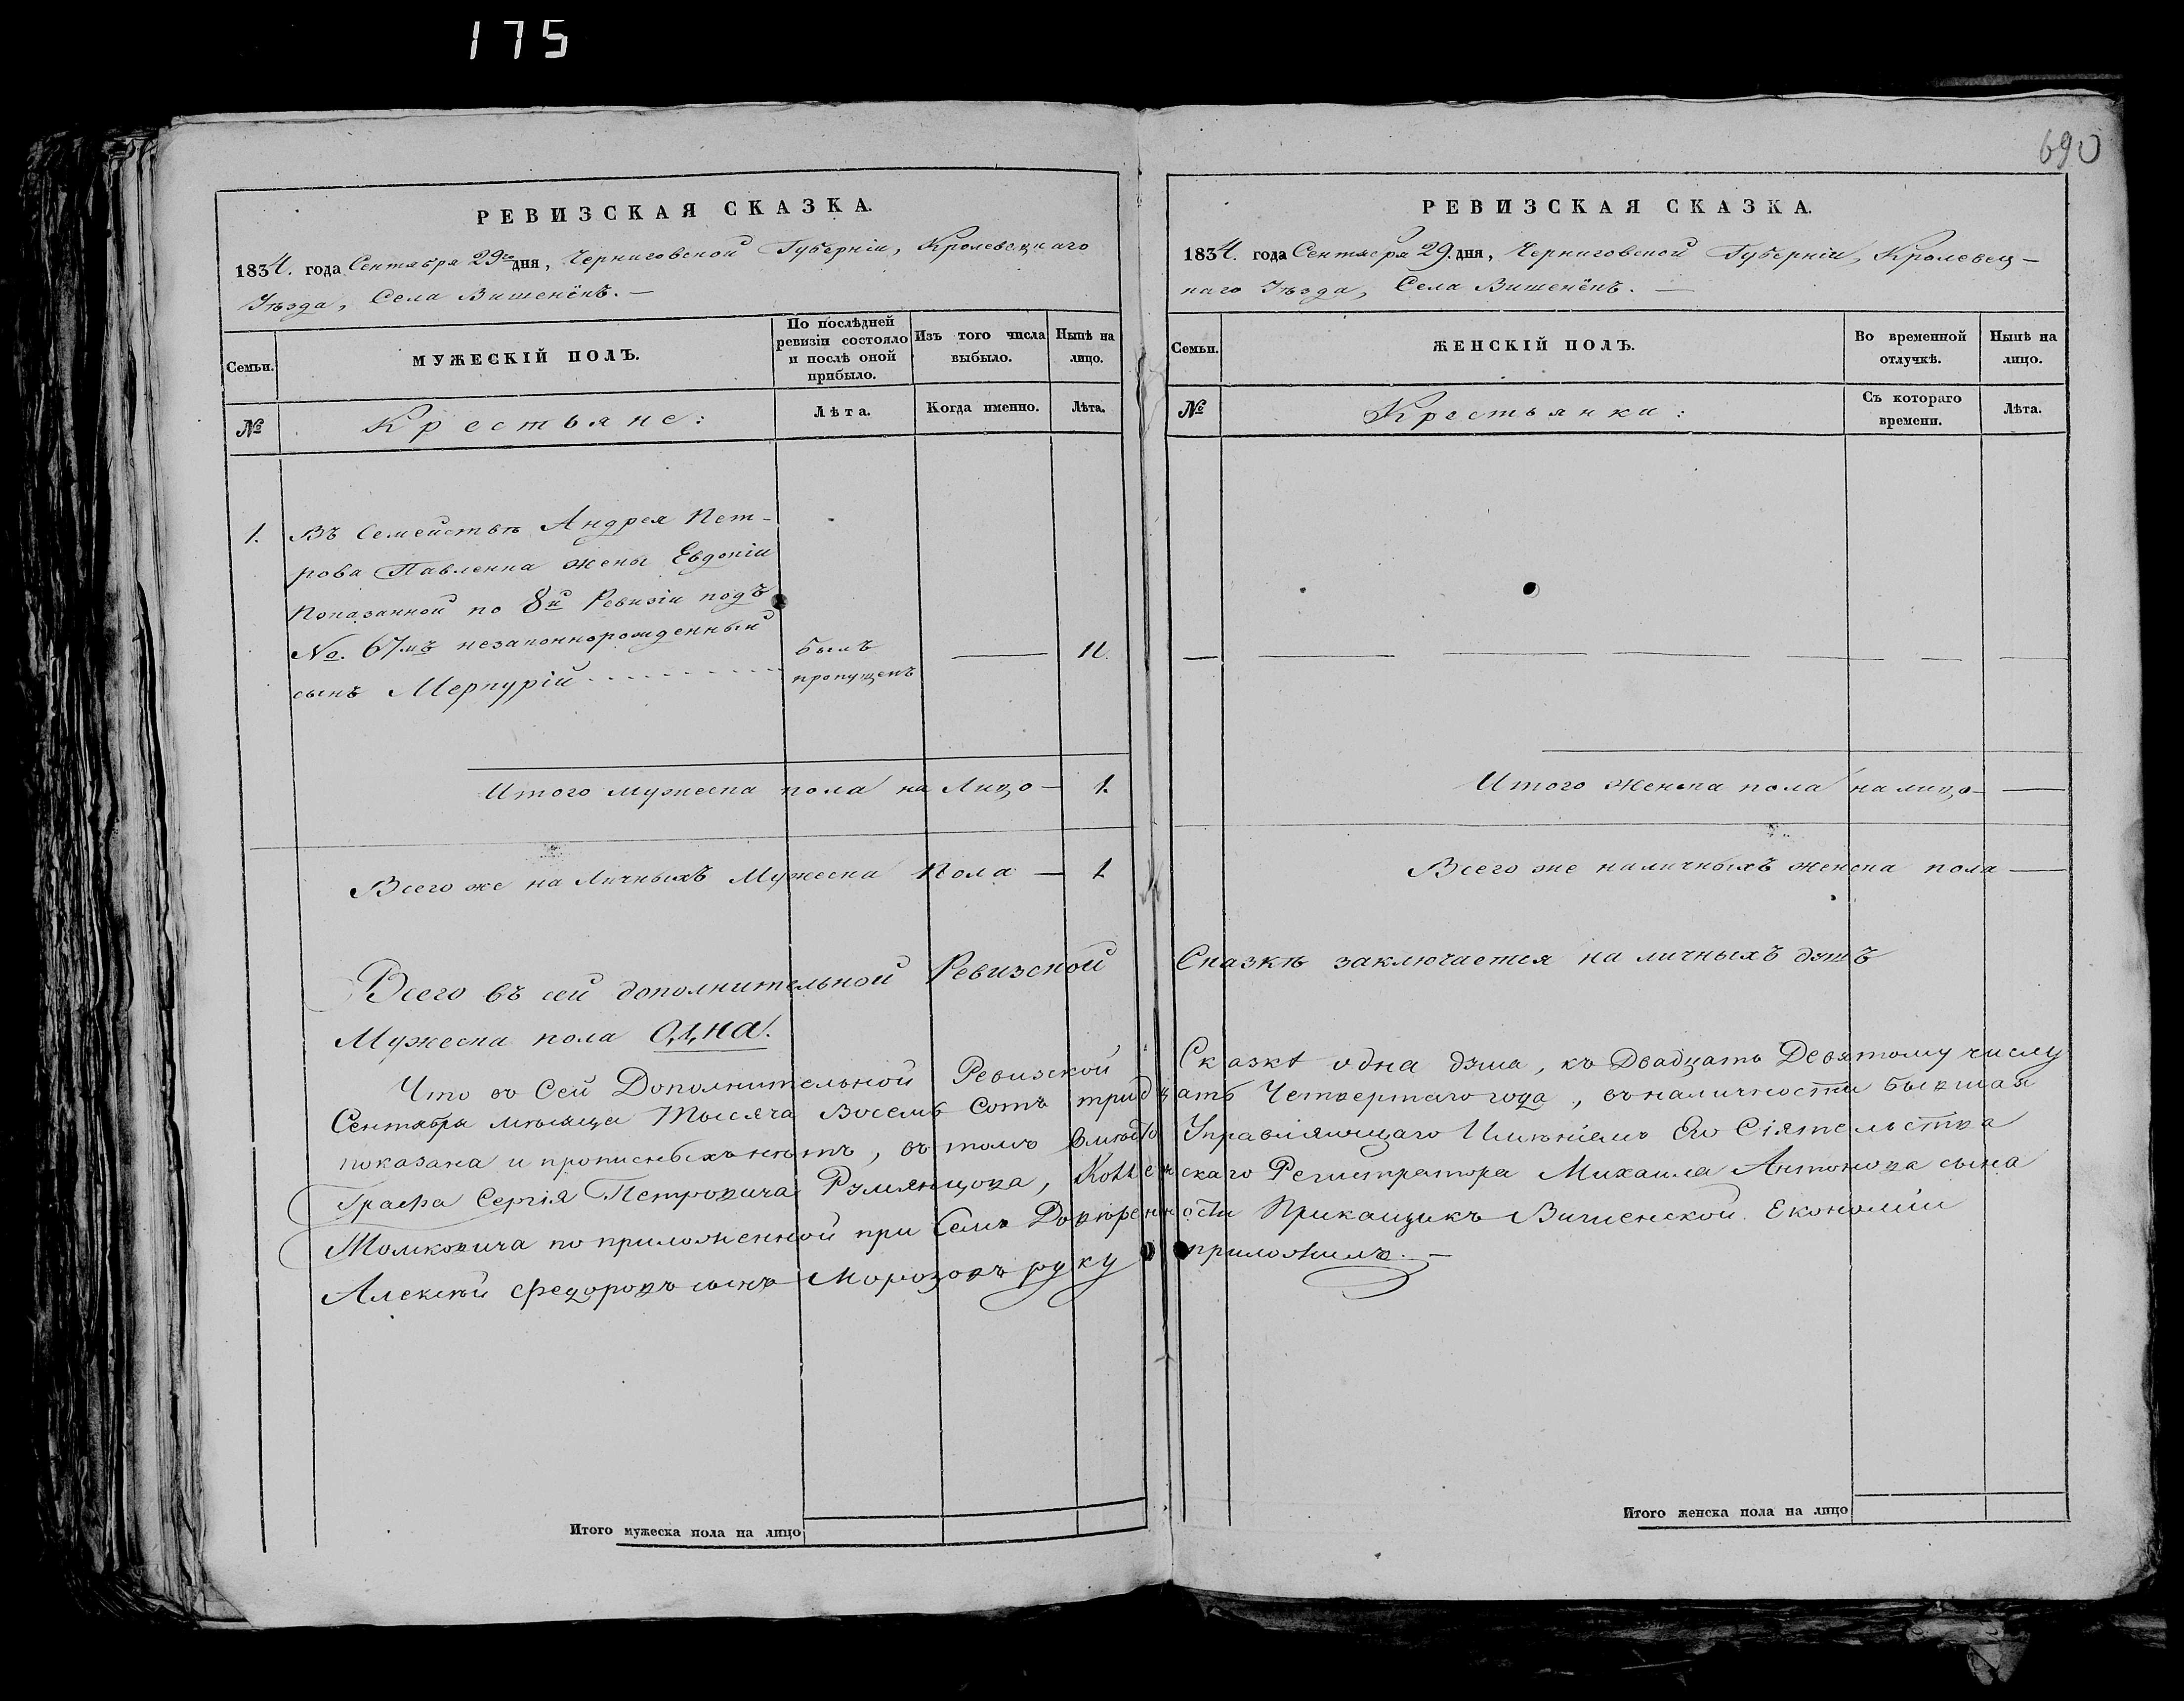 175
690
РЕВИЗСКАЯ СКАЗКА.
1834. года Сентября 29го дня, Черниговской Губерніи, Кролевецкаго
Уѣзда, Села Вишенёкъ. —
Семьи.
МУЖЕСКІЙ ПОЛЪ.
По послѣдней ревизіи состояло и послѣ оной прибыло.
Изъ того числа выбыло.
Нынѣ на лицо.
№
Крестьяне:
Лѣта.
Когда именно.
Лѣта.
1. Въ Семействѣ Андрея Пет-
рова Павленка жены Евдокіи
Показанной по 8й Ревизіи подъ
№. 67мъ незаконнорожденный
сынъ Меркурій
былъ
пропущенъ
— 11.
Итого мужеска пола на Лицо — 1.
Всего же на Личныхъ Мужеска Пола — 1.
РЕВИЗСКАЯ СКАЗКА.
1834. года Сентября 29. дня, Черниговской Губерніи, Кролевец-
каго Уѣзда, Села Вишенёкъ. —
Семьи.
ЖЕНСКІЙ ПОЛЪ.
Во временной отлучкѣ.
Нынѣ на лицо.
№
Крестьянки:
Съ котораго времени.
Лѣта.
Итого Женска пола на лицо —
Всего же наличныхъ женска пола —
Всего въ сей дополнительной Ревизской Сказкѣ заключается на личныхъ душъ
Мужеска пола Одна.
Что въ Сей Дополнительной Ревизской Сказкѣ одна душа, къ Двадцать Девятому числу
Сентября мѣсяца Тысяча Восемь Сотъ тридцать Четвертаго года, въ наличности бывшая
показана и прописныхъ нѣтъ, въ томъ вмѣсто Управляющаго Имѣніемъ Его Сіятельства
Графа Сергія Петровича Румянцова, Коллежскаго Регистратора Михаила Антонова сына
Томковича по приложенной при Семъ Довѣренности Прикащикъ Вишенской Економіи
Алексѣй Федоровъ сынъ Морозовъ руку приложилъ. —
Итого мужеска пола на лицо
Итого женска пола на лицо